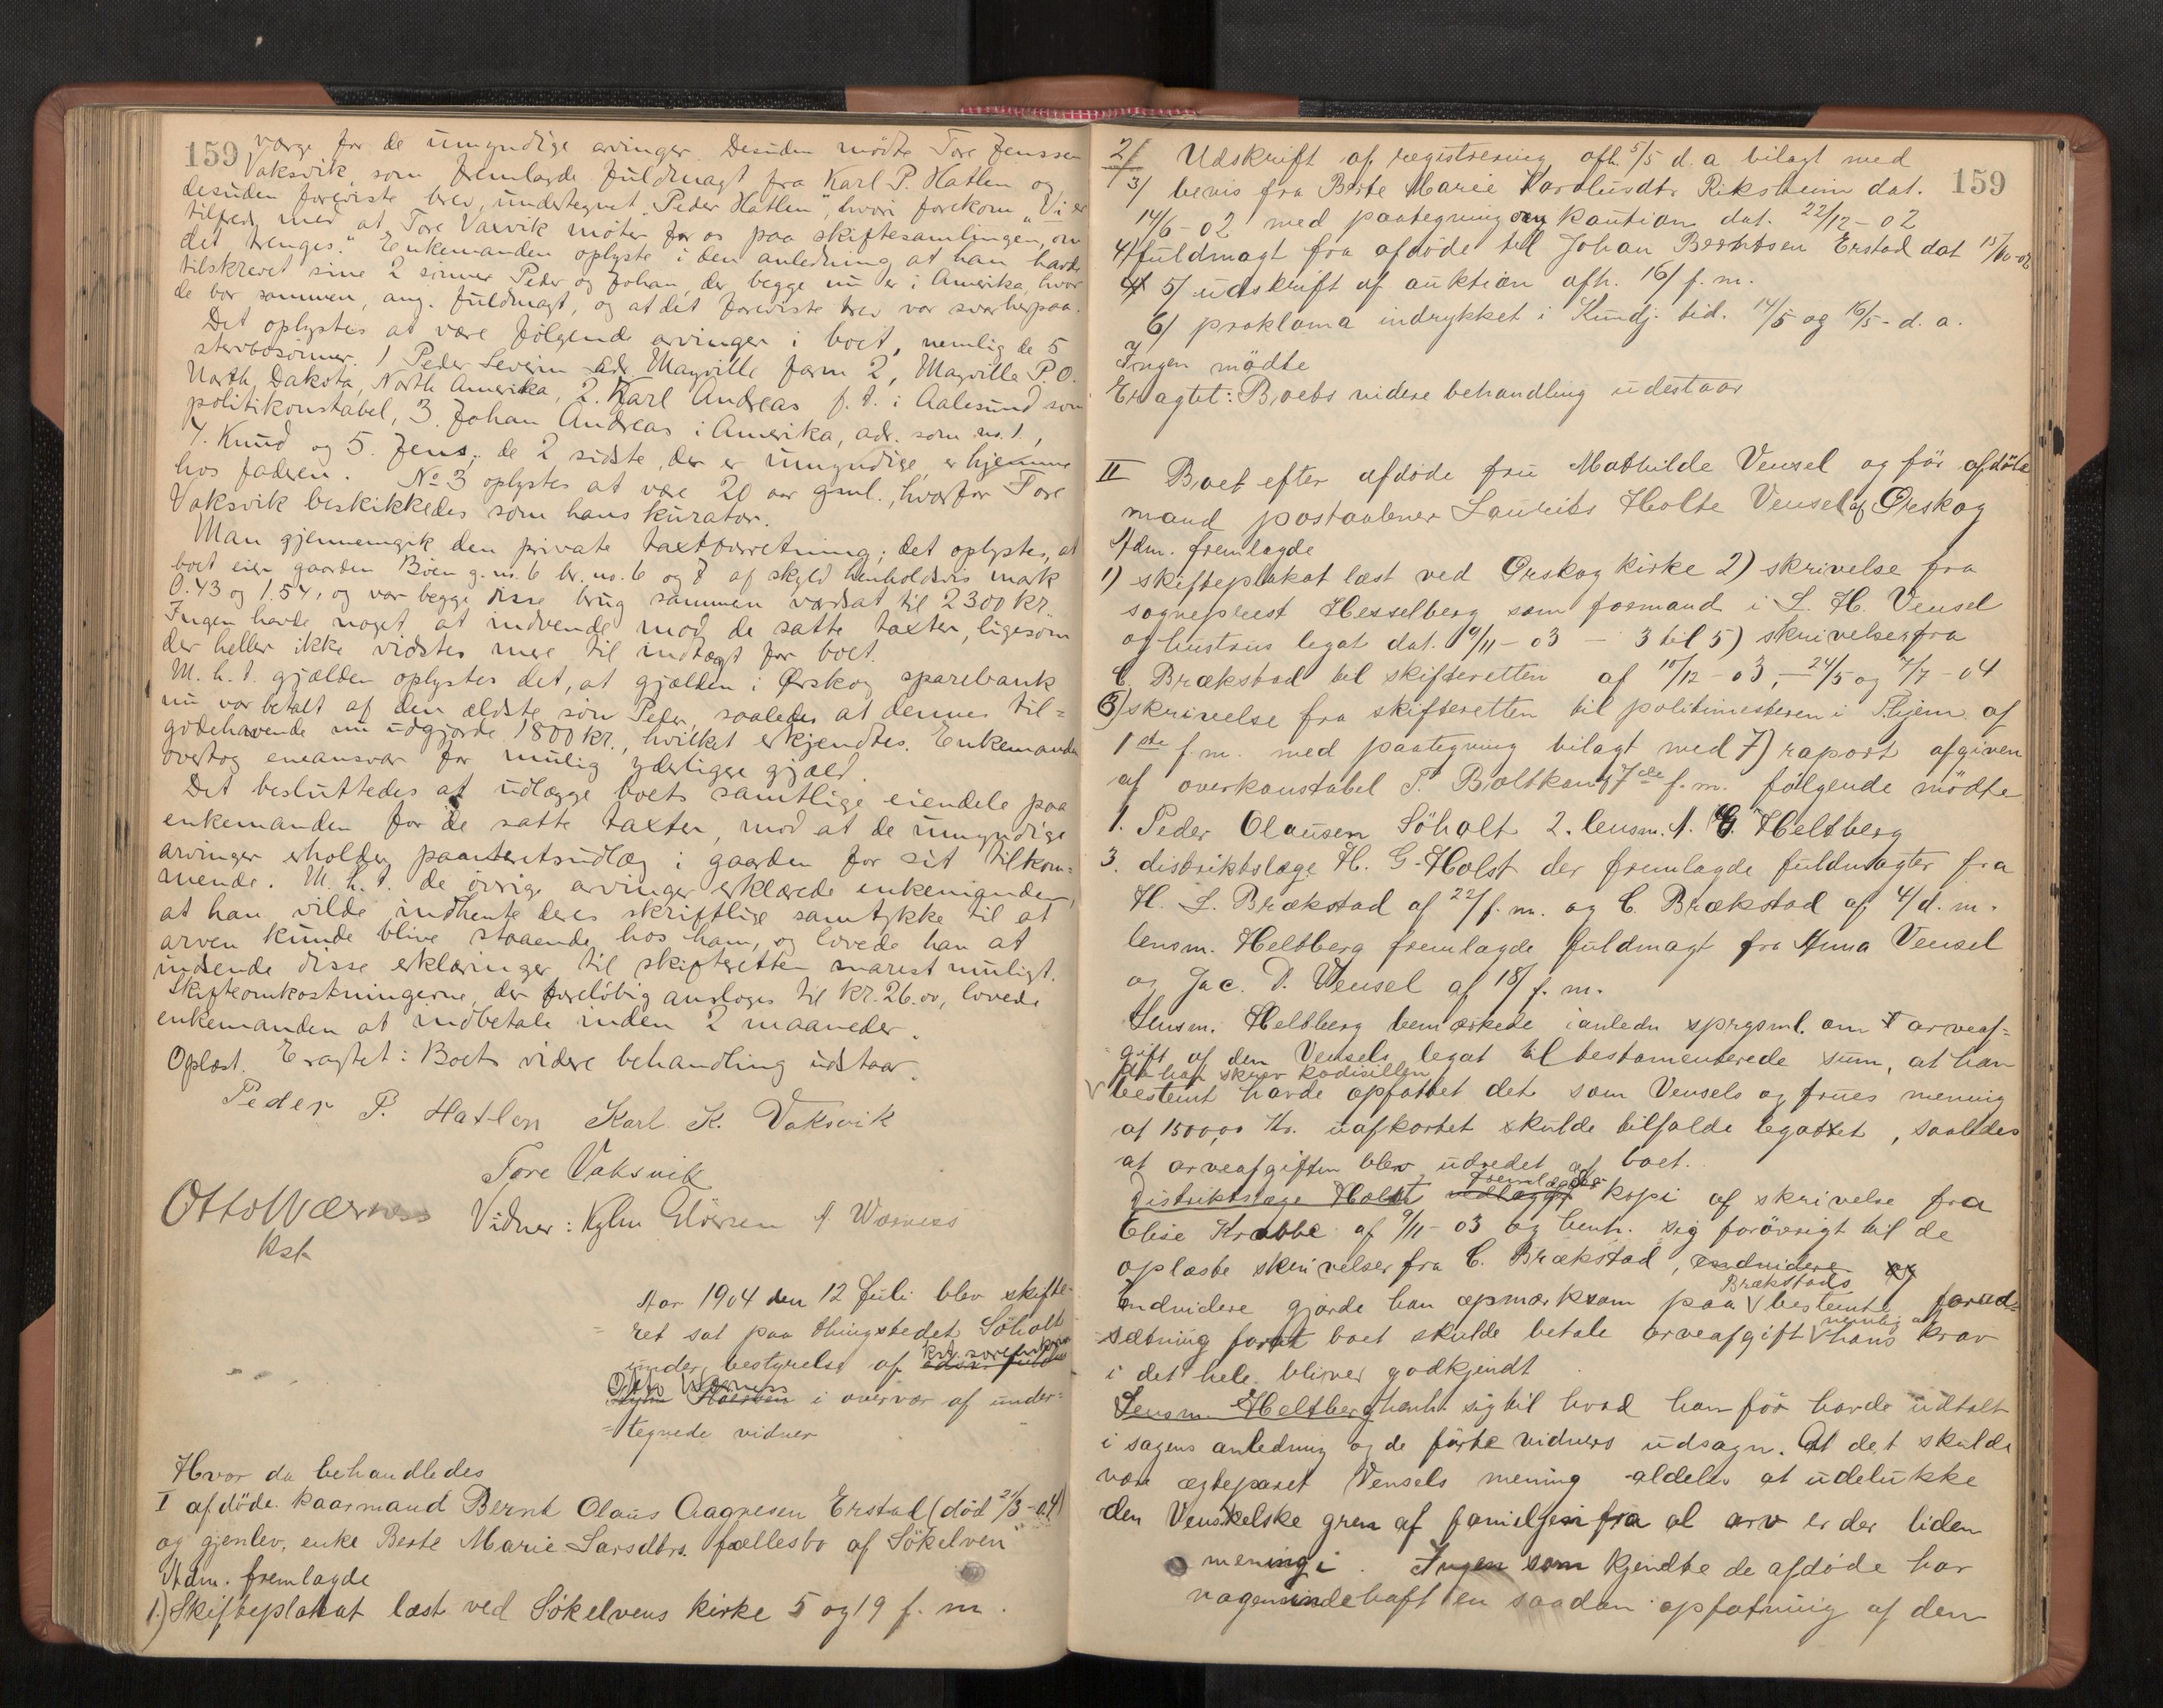 159
værge for de umyndige arvinger. Desuden mödte Tore Jenssen
Vaksvik, som fremlagde fuldmagt fra Karl P. Hatlen og
desuden foreviste brev, undertegnet "Peder Hatlen", hvori forekom "Vi er
tilfreds med at Tore Vaxvik möter for os paa skiftesamlingen, om
det trenges." Enkemanden oplyste i den anledning at han havde
tilskrevet sine 2 sönner Peder og Johan, der begge nu er i Amerika, hvor
de bor sammen, ang. fuldmagt, og at det foreviste brev var svar herpaa.
Det oplystes at være fölgende arvinger i boet, nemlig de 5
sterbosönner: 1 Peder Severin adr. Mayville farm 2, Mayville P.O.
North Dakota, North Amerika, 2. Karl Andreas f. t. i Aalesund som
politikonstabel, 3. Johan Andreas i Amerika, adr. som no. 1.,
4. Knud og 5. Jens, de 2 sidste, der er umyndige, er hjemme
hos faderen. No 3 oplystes at være 20 aar gml., hvorfor Tore
Vaksvik beskikkedes som hans kurator.
Man gjennemgik den private taxtforretning; det oplystes, at
boet eier gaarden Böen g. no. 6 br. no. 6 og 7 af skyld henholdsvis mark
0.43 og 1.54, og var begge disse brug sammen værdsat til 2300 kr.
Ingen havde noget at indvende mod de satte taxter, ligesom
der heller ikke vidstes mere til indtægt for boet.
M. h. t. gjælden oplystes det, at gjælden i Ørskog sparebank
nu var betalt af den ældste sön Peder, saaledes at dennes til=
godehavende nu udgjorde 1800 kr., hvilket erkjendtes. Enkemanden
overtog eneansvar for mulig yderligere gjæld.
Det besluttedes at udlægge boets samtlige eiendele paa
enkemanden for de satte taxter, mod at de umyndige
arvinger erholder panteretsudlæg i gaarden for sit tilkom=
mende. M. h. t. de övrige arvinger erklærede enkemanden,
at han vilde indhente deres skriftlige samtykke til at
arven kunde blive staaende hos ham, og lovede han at
indsende disse erklæringer til skifteretten snarest muligt.
Skifteomkostningerne, der forelöbig ansloges til kr. 26.00, lovede
enkemanden at indbetale inden 2 maaneder.
Oplæst. Eragtet: Boets videre behandling udstaar.
Peder P. Hatlen Karl K. Vaksvik
Tore Vaksvik
Otto Wærness Vidner: A Wærness
Kst
Aar 1904 den 12 Juli blev skifte=
ret sat paa thingstedet Söholt
under bestyrelse af kst. sorenskr.
Otto Wærness i overvær af under=
tegnede vidner
Hvor da behandledes
I afdöde kaarmand Bernt Olaus Aagnesen Erstad (död 21/3-04)
og gjenlev. enke Berte Marie Larsdtrs. fællesbo af Sökelven
Adm. fremlagde
1.) Skifteplakat læst ved Sökelvens kirke 5 og 19 f. m.
159
2/ Udskrift af registrering afh. 5/5 d. a bilagt med
3/ bevis fra Berte Marie Riksheim dat.
14/6-02 med paategning om kaution dat. 22/12-02
4/ fuldmagt fra afdöde til Johan Berntsen Erstad dat
5/ udskrift af auktion afh. 16/ f. m.
6/ proklama indrykket i Kundj. tid. 14/5 og 16/5- d. a.
Ingen mödte
Eragtet: Boets videre behandling udestaar
II Boet efter afdöde fru Mathilde Vensel og för afdöde
mand postaabner Laurits Holte Vensel af Ørskog
Adm. fremlagde
1) skifteplakat læst ved Ørskog kirke 2) skrivelse fra
sogneprest Hesselberg som formand i L. H. Vensel
og hustrus legat dat. 9/11-03 - 3 til 5) skrivelser fra
C. Brækstad til skifteretten af 10/12-03, - 24/5 og 7/7-04
6) skrivelse fra skifteretten til politimesteren i Thjem af
1ste f. m. med paategning bilagt med 7) raport afgiven
af overkonstabel P. Boltkan 7de f. m. fölgende mödte
1. Peder Olausen Söholt 2. lensm. A. G. Heltberg
3. distriktslæge H. G. Holst der fremlagde fuldmagter fra
H. L. Brækstad af 22/ f. m. og C. Brækstad af 4/ d. m.
lensm. Heltberg fremlagde fuldmagt fra Anna Vensel
og Jac. D. Vensel af 18/ f. m.
Lensm. Heltberg bemærkede i anledn spргsml. om arveaf=
gift af den Vensels legat til testamenterede sum, at han
da han skrev kodisillen
bestemt havde opfattet det som Vensels og frues mening
at 15000,00 Kr. uafkortet skulde tilfalde legatet, saaledes
at arveafgiften blev udredet af boet.
Distriktslæge Holst fremlagde kopi af skrivelse fra
Elise Krabbe af 9/11-03 og henh. sig forövrigt til de
oplæste skrivelser fra C. Brækstad, endvidere og
Brækstads
Endvidere gjorde han opmærksom paa bestemte forud=
nemlig at
sætning forat boet skulde betale arveafgift hans krav
i det hele bliver godkjendt
Lensm. Heltberg henh. sig til hvad han för havde udtalt
i sagens anledning og de förte vidners udsagn. At det skulde
være ægteparet Vensels mening aldeles at udelukke
den Venselske gren af familjen fra al arv er der liden
mening i. Ingen som kjendte de afdöde har
nogensinde haft en saadan opfatning af dem